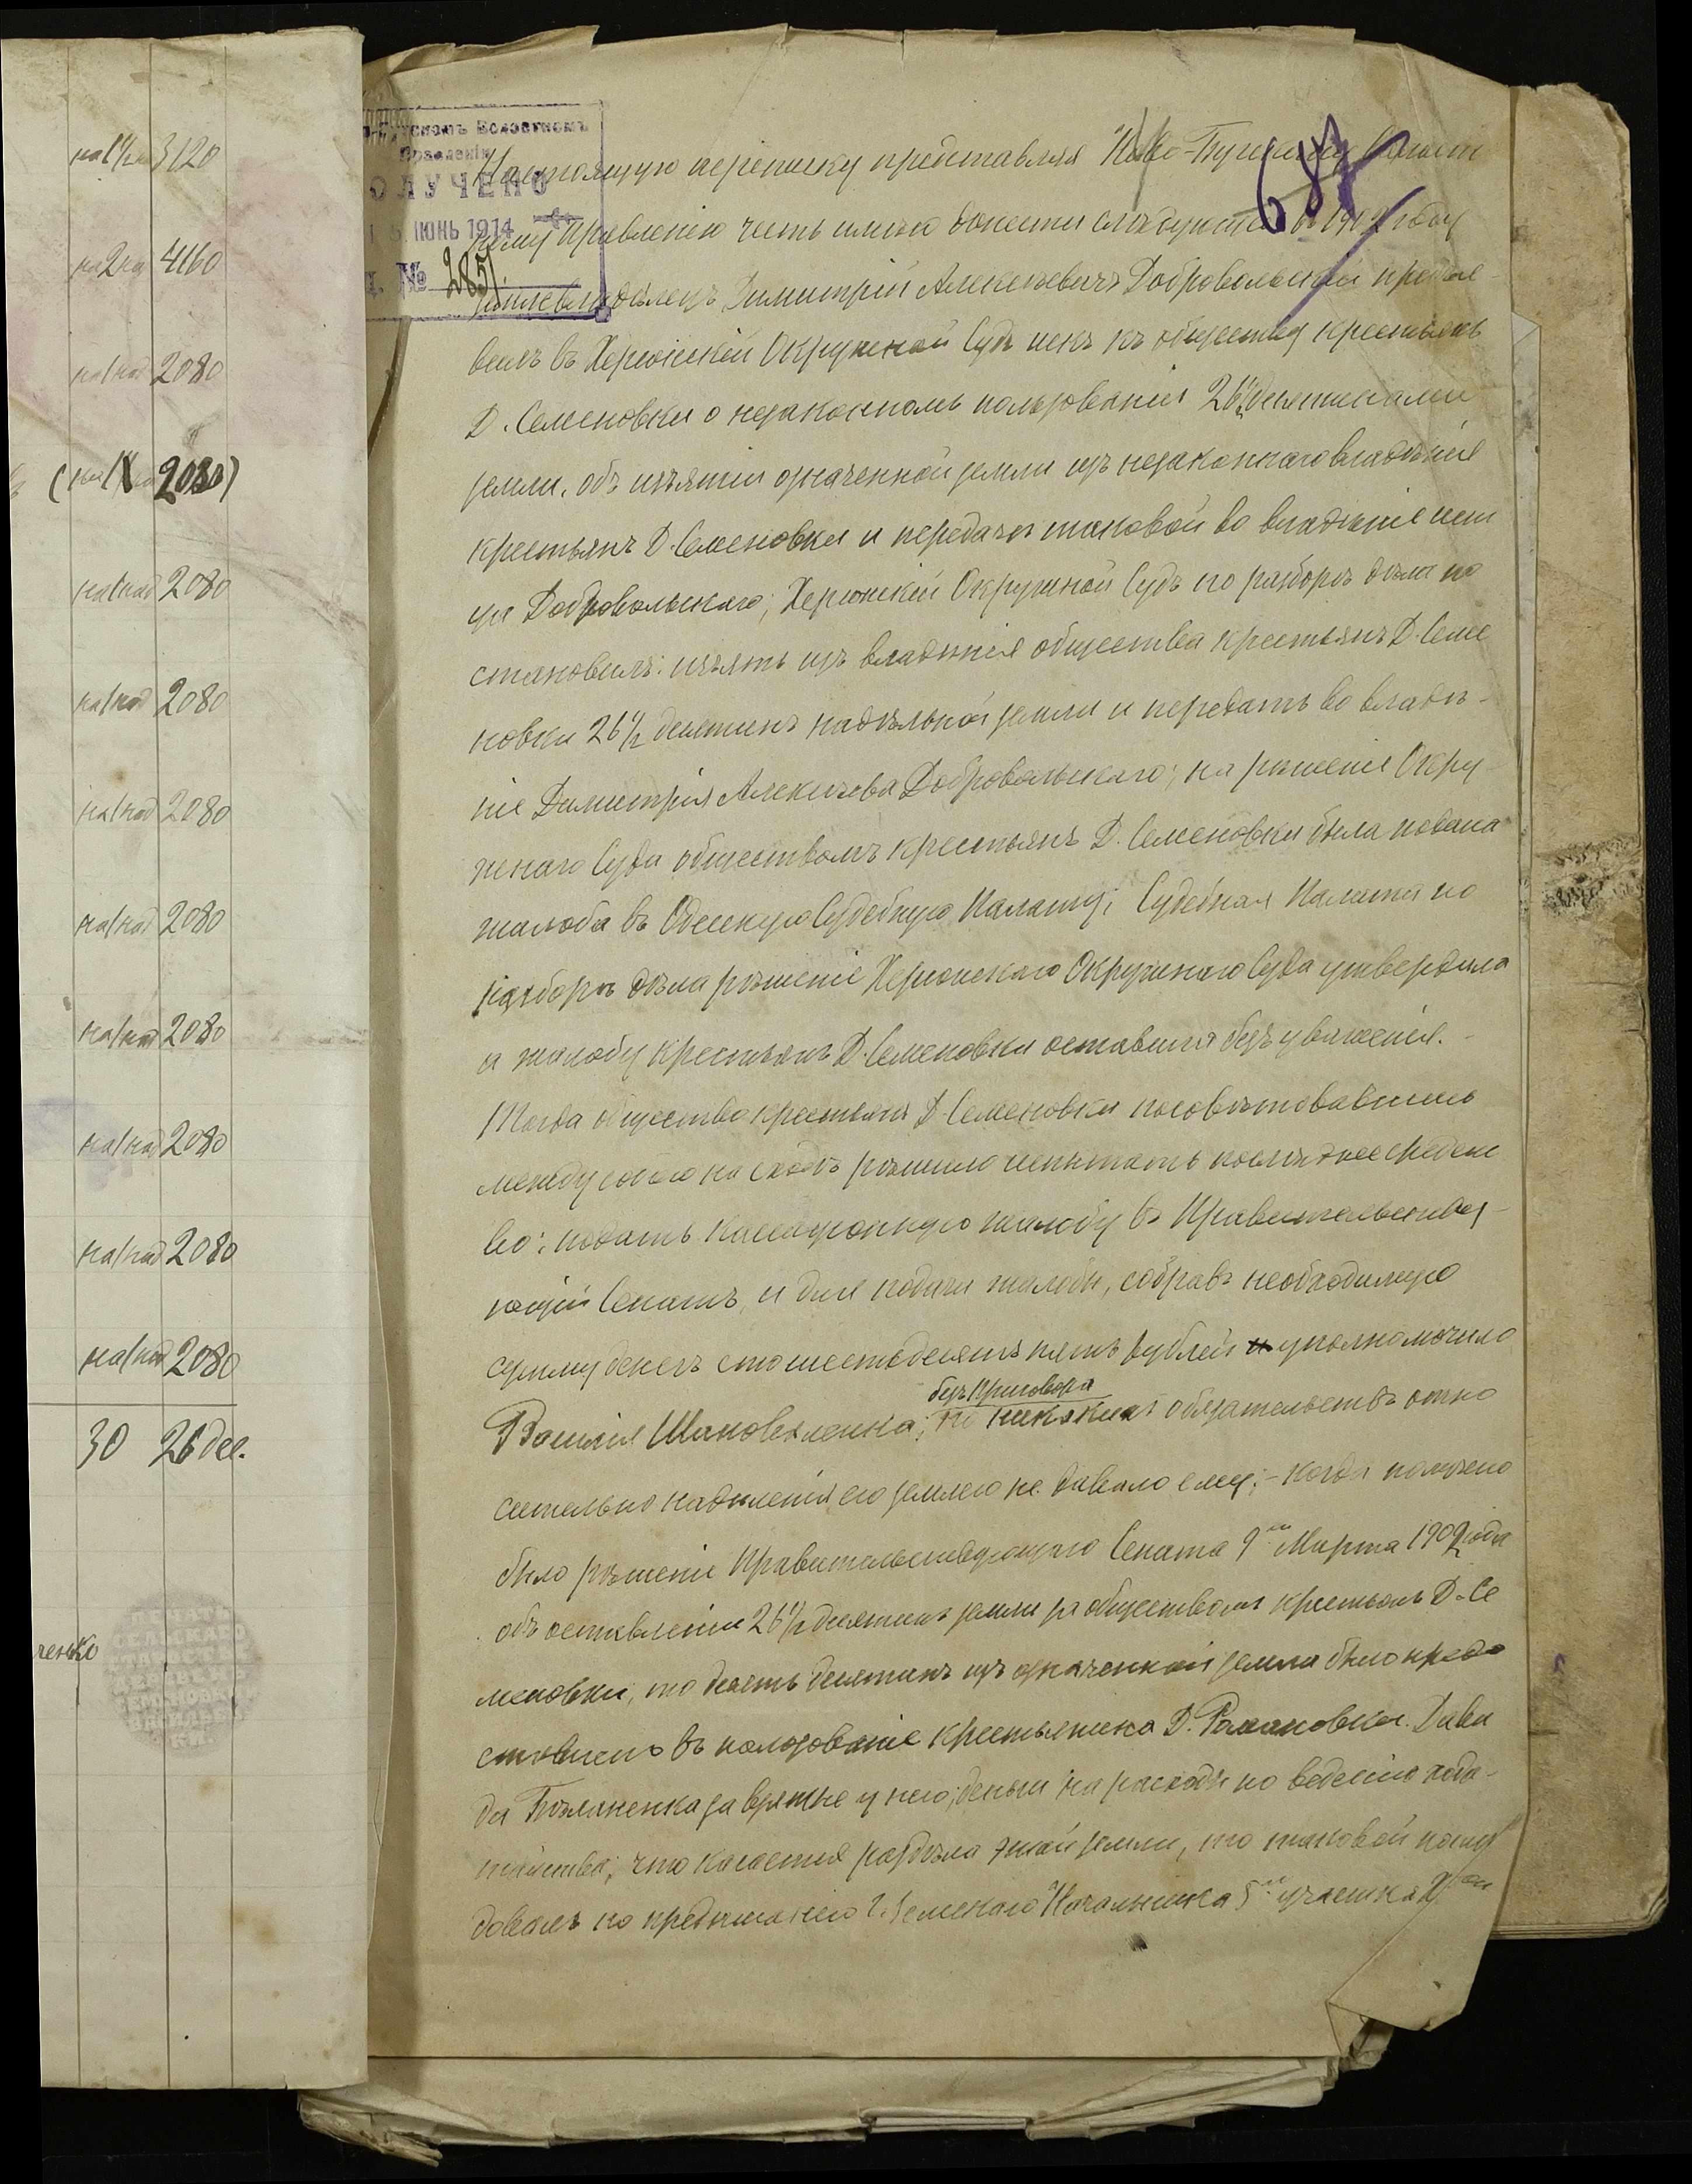 на 1½ над 3120
на 2 над 4160
на 1 над 2080
2080)
на 1 над 2080
на 1 над 2080
на 1 над 2080
на 1 над 2080
на 1 над 2080
на 1 над 2080
на 1 над 2080
на 1 над 2080
30 26 дес.
ченко
Волостномъ
Правленіи
ПОЛУЧЕНО
ІЮНЬ 1914
№ 2851
68
Настоящую переписку представляя Ново-Бугскому Волост
ному Правленію честь имѣю донести слѣдующее: въ 1902 году
землевладѣлецъ Димитрій Алексѣевичъ Добровольскій предъя-
вилъ въ Херсонскій Окружной Судъ искъ къ обществу крестьянъ
Д. Семеновки о незаконномъ пользованіи 26½ десятинами
земли, объ изъятіи означенной земли изъ незаконнаго владѣнія
крестьянъ Д. Семеновки и передачи таковой во владѣніе ист
ца Добровольскаго; Херсонскій Окружной Судъ по разборѣ дѣла по
становилъ: изъять изъ владѣнія общества крестьянъ Д. Семе
новки 26½ десятинъ надѣльной земли и передать во владѣ-
ніе Димитрія Алексѣева Добровольскаго; на рѣшеніе Окру
жнаго Суда обществомъ крестьянъ Д. Семеновки была подана
жалоба въ Одесскую Судебную Палату; Судебная Палата по
разборѣ дѣла рѣшеніе Херсонскаго Окружнаго Суда утвердила
а жалобу крестьянъ Д. Семеновки оставила безъ уваженія.-
Тогда общество крестьянъ Д. Семеновки посовѣтовавшись
между собою на сходѣ рѣшило испытать послѣднее средст
во: подать кассаціонную жалобу въ Правительствую-
ющій Сенатъ, и для подачи жалобы, собравъ необходимую
сумму денегъ сто шестьдесятъ пять рублей уполномочило
безъ приговора
Василія Шаповаленка; но никакихъ обязательствъ отно
сительно надѣленія его землею не давало ему;- когда получено
было рѣшеніе Правительствующаго Сената 9го Марта 1909 года
объ оставленіи 26½ десятинъ земли за обществомъ крестьянъ Д. Се
меновки, то десять десятинъ изъ означенной земли было предо
ставлено въ пользованіе крестьянина Д. Романовки. Дави
да за взятые у него деньги на расходы по веденію хода-
тайства; что касается раздѣла этой земли, то таковой
по предписанію Г. Земскаго Начальника 5го участка